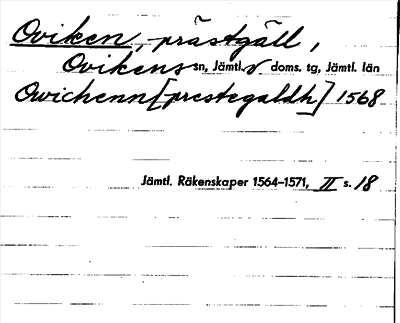 Oviken, prästgäll,
Ovikens sn, Jämtl. v doms. tg, Jämtl. län
Owichenn [prestegaldh] 1568
Jämtl. Räkenskaper 1564–1571, II s. 18